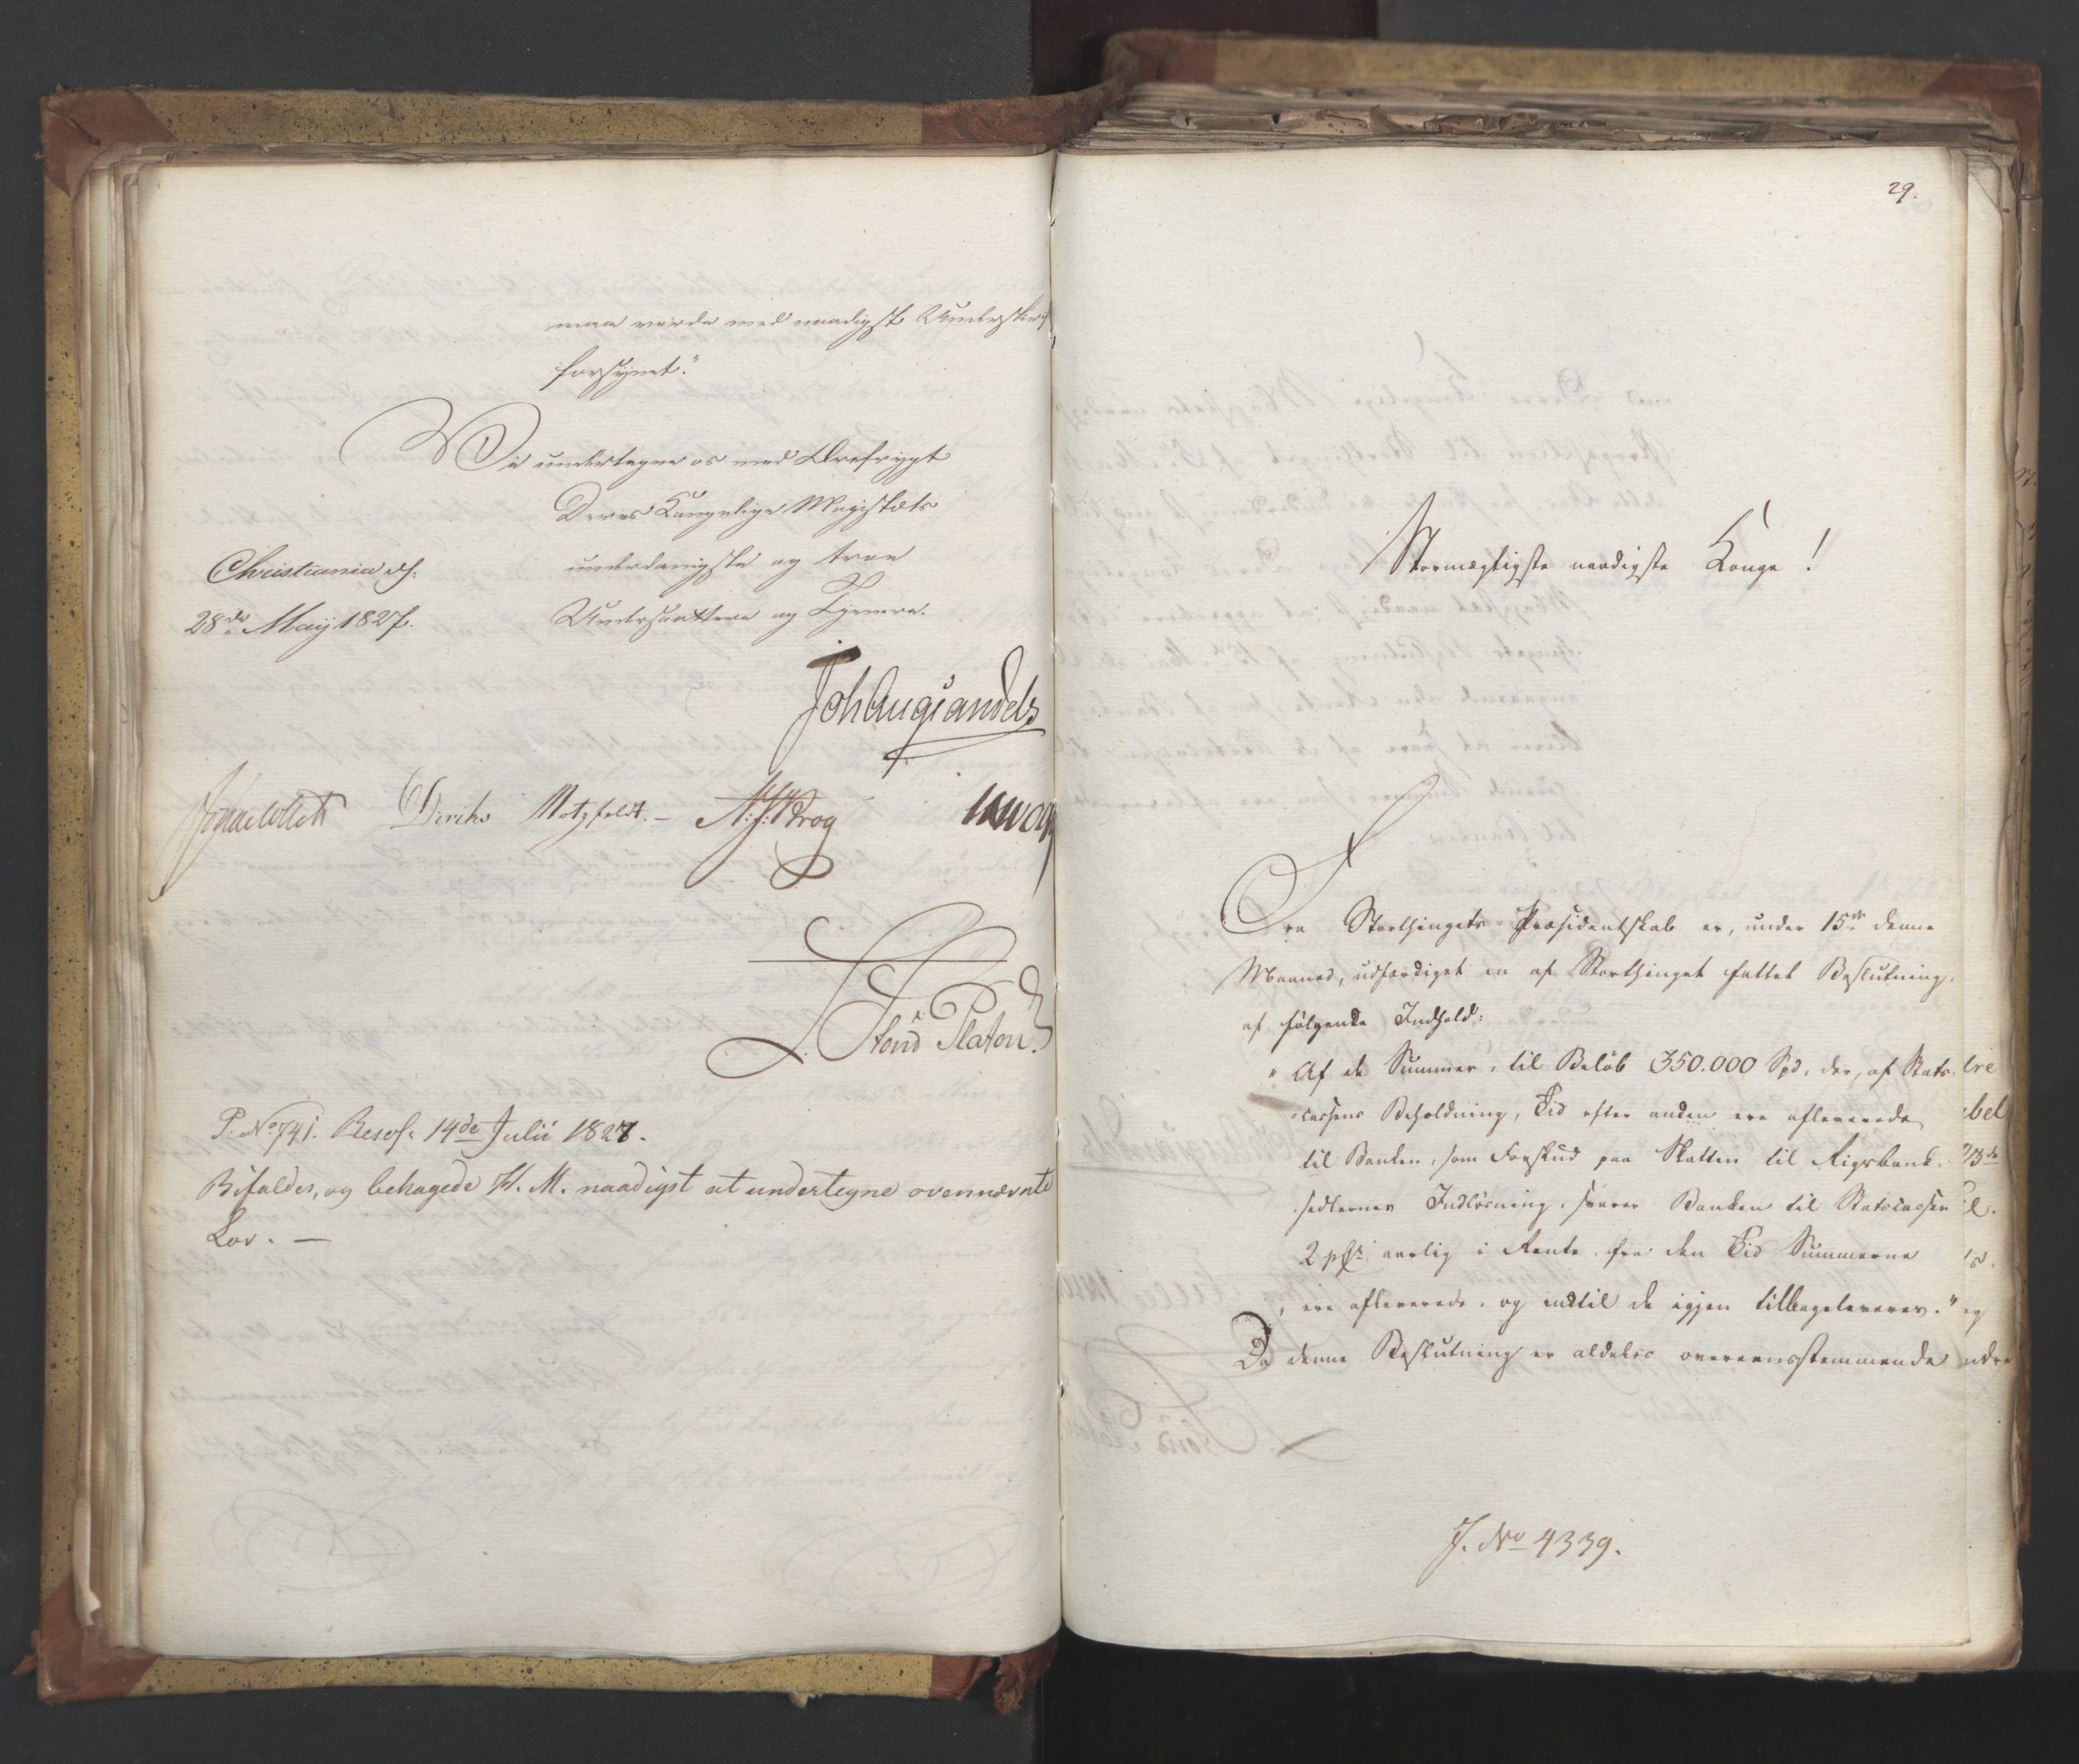 maa vorde med naadigst Underskrift
forsynet."
Vi undertegne os med Ærefrygt
Deres Kongelige Majestæts
underdanigste og troe
Undersaattere og Tjenere.
Christiania d.
28de Maij 1827.
Joh Aug Sandels
Jonas Collett Diriks Motzfeldt. – A. J. Krog
Stoud Platou.
P. No 741. Resol: 14de Julii 1827.
Bifaldes, og behagede H. M. naadigst at undertegne ovennævnte
Lov. —
29.
Stormægtigste naadigste Konge!
Fra Storthingets Præsidentskab er, under 15de denne
Maaned, udfærdiget en af Storthinget fattet Beslutning,
af følgende Indhold:
"Af de Summer, til Beløb 350.000 Spd, der, af Stats-
cassens Beholdning, Tid efter anden ere afleverede
til Banken, som Forskud paa Skatten til Rigsbank-
sedlernes Indløsning, svarer Banken til Statscassen
2 pCt. aarlig i Rente fra den Tid Summerne
ere afleverede, og indtil de igjen tilbageleveres."
Da denne Beslutning er aldeles overeensstemmende
J. No 4339.